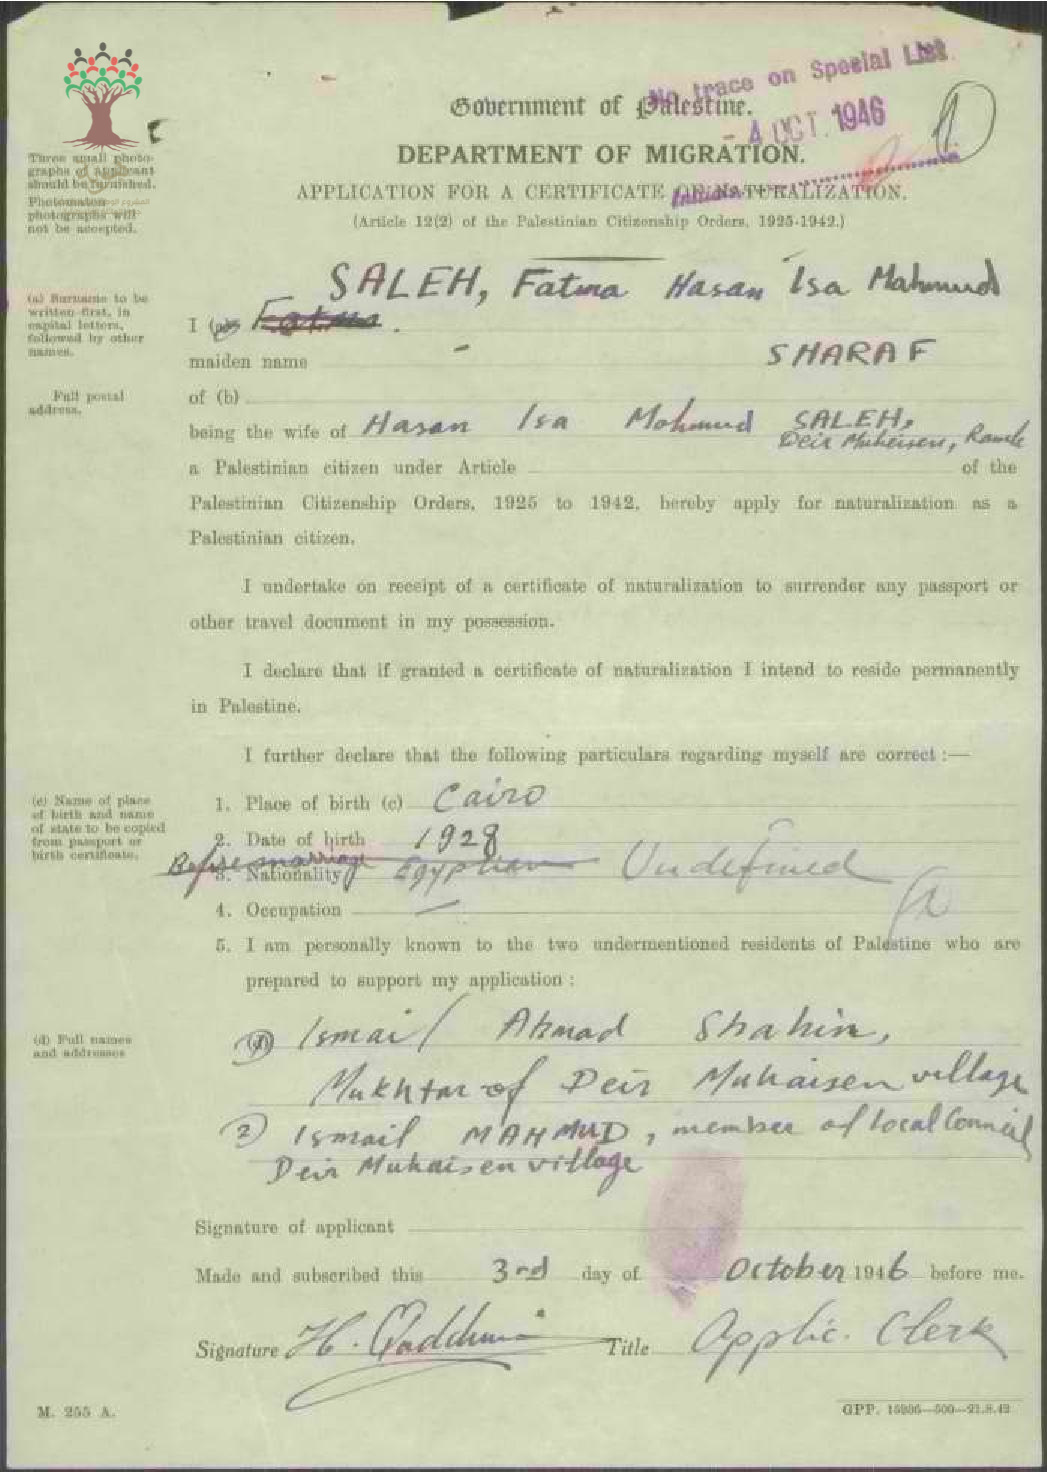 No trace on Special List.
Government of Palestine.
- 4 OCT. 1946
DEPARTMENT OF MIGRATION.
APPLICATION FOR A CERTIFICATE OF NATURALIZATION.
(Article 12(2) of the Palestinian Citizenship Orders, 1925-1942.)
Three small photo-
graphs of applicant
should be furnished.
Photomaton
photographs will
not be accepted.
SALEH, Fatma Hasan Isa Mahmud
(a) Surname to be
written first, in
capital letters,
followed by other
names.
I (a) Fatma.
maiden name - SHARAF
Full postal
address.
of (b)
being the wife of Hasan Isa Mohmud SALEH,
Deir Muheisen, Ramle
a Palestinian citizen under Article of the
Palestinian Citizenship Orders, 1925 to 1942, hereby apply for naturalization as a
Palestinian citizen.
I undertake on receipt of a certificate of naturalization to surrender any passport or
other travel document in my possession.
I declare that if granted a certificate of naturalization I intend to reside permanently
in Palestine.
I further declare that the following particulars regarding myself are correct :—
(c) Name of place
of birth and name
of state to be copied
from passport or
birth certificate.
1. Place of birth (c) Cairo
2. Date of birth 1928
Before marriage
3. Nationality Egyptian Undefined
4. Occupation —
5. I am personally known to the two undermentioned residents of Palestine who are
prepared to support my application :
(d) Full names
and addresses
(1) Ismail Ahmad Shahin,
Mukhtar of Deir Muhaisen village
2) Ismail MAHMUD, member of local Council
Deir Muhaisen village
Signature of applicant
Made and subscribed this 3rd day of October 1946 before me.
Signature H. Qaddumi Title Applic. Clerk
M. 255 A.
GPP. 15986—500—21.8.42